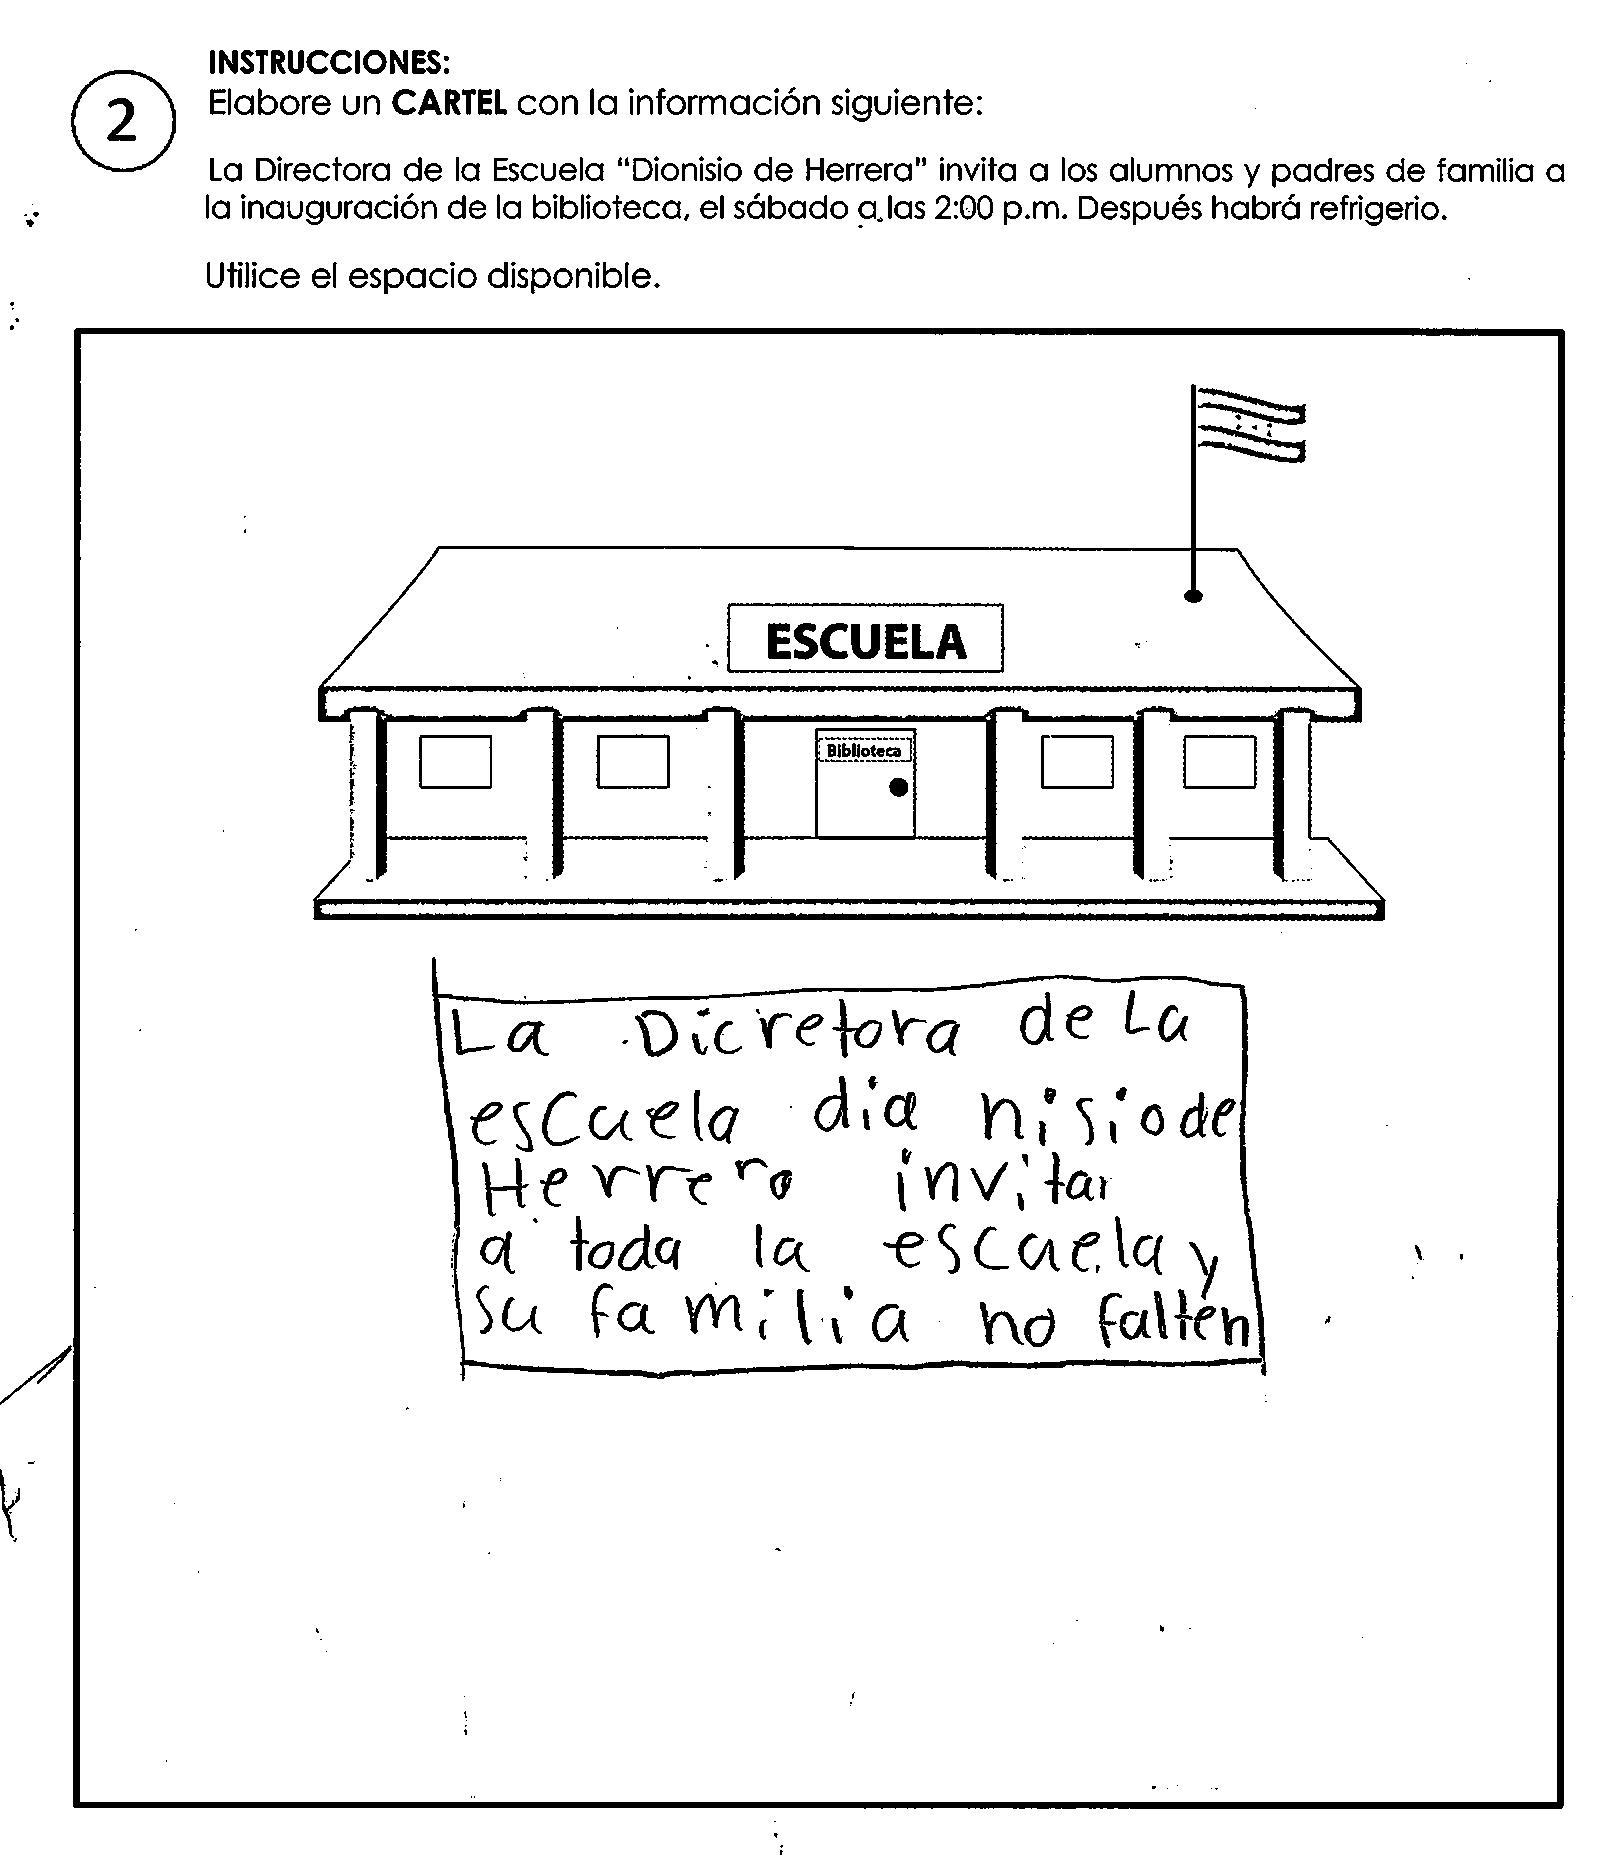 INSTRUCCIONES:
2
Elabore un CARTEL con la información siguiente:
La Directora de la Escuela "Dionisio de Herrera" invita a los alumnos y padres de familia a
la inauguración de la biblioteca, el sábado a las 2:00 p.m. Después habrá refrigerio.
Utilice el espacio disponible.
ESCUELA
Biblioteca
La Dicretora de La
escuela dia nisiode
Herrero invitar
a toda la escuela y
su familia no falten